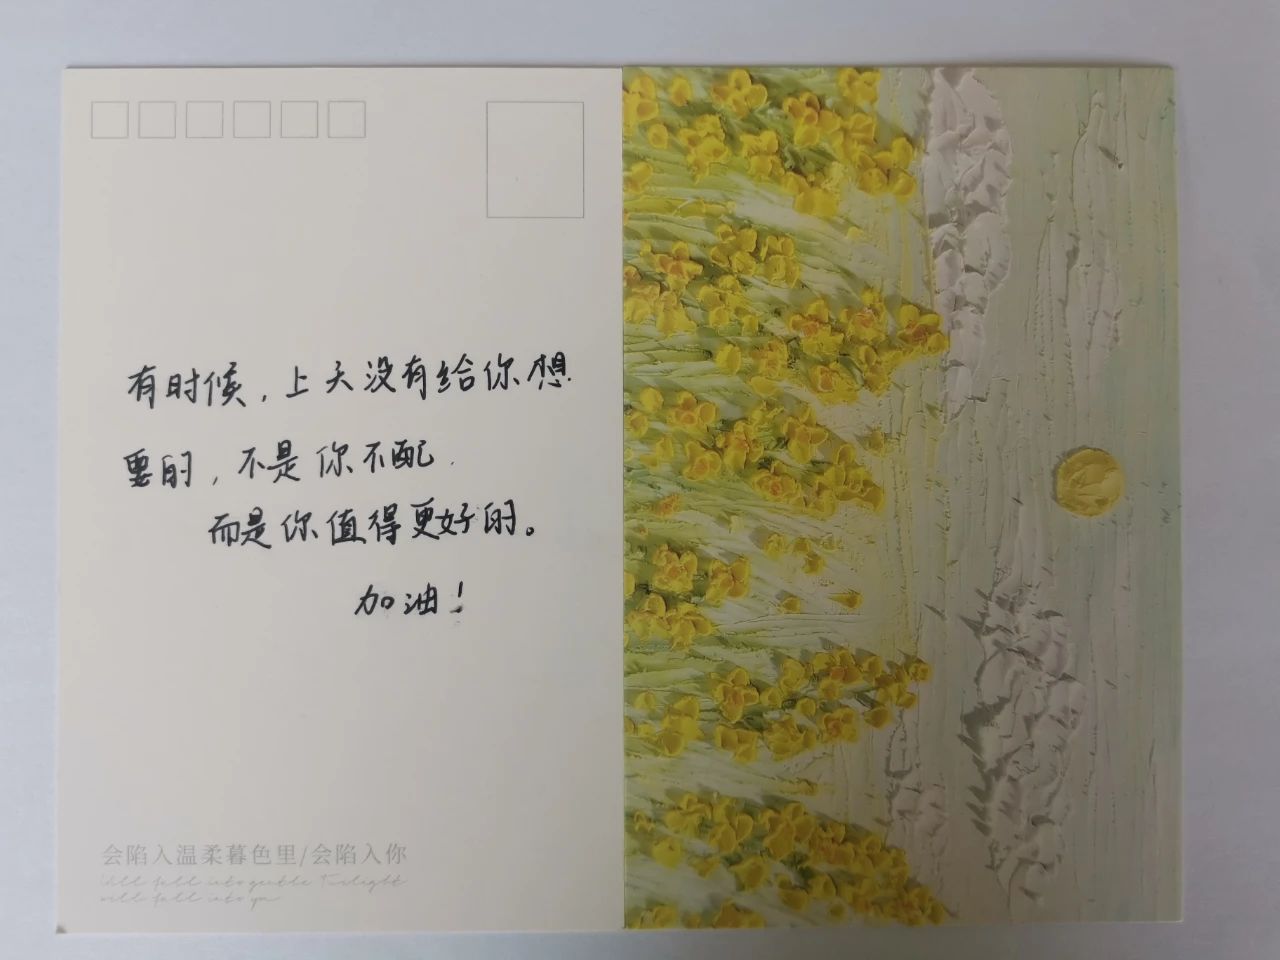 有时候，上天没有给你想
要的，不是你不配．
而是你值得更好的。
加油！
会陷入温柔暮色里/会陷入你
will fall into gentle Twilight
will fall into yu